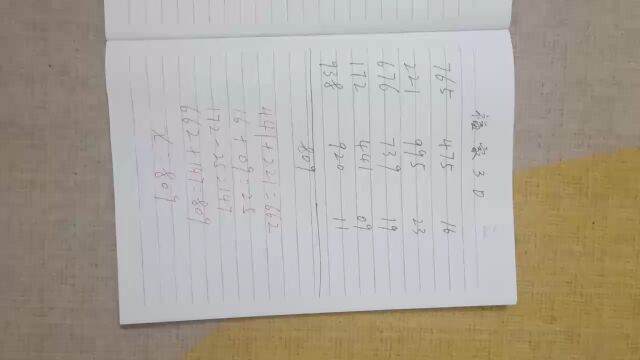 福家3D
765 475 16
221 995 23
676 739 19
172 441 09
938 920 11
809
441+221=662
16+09=25
172-25=147
662+147=809
X 809